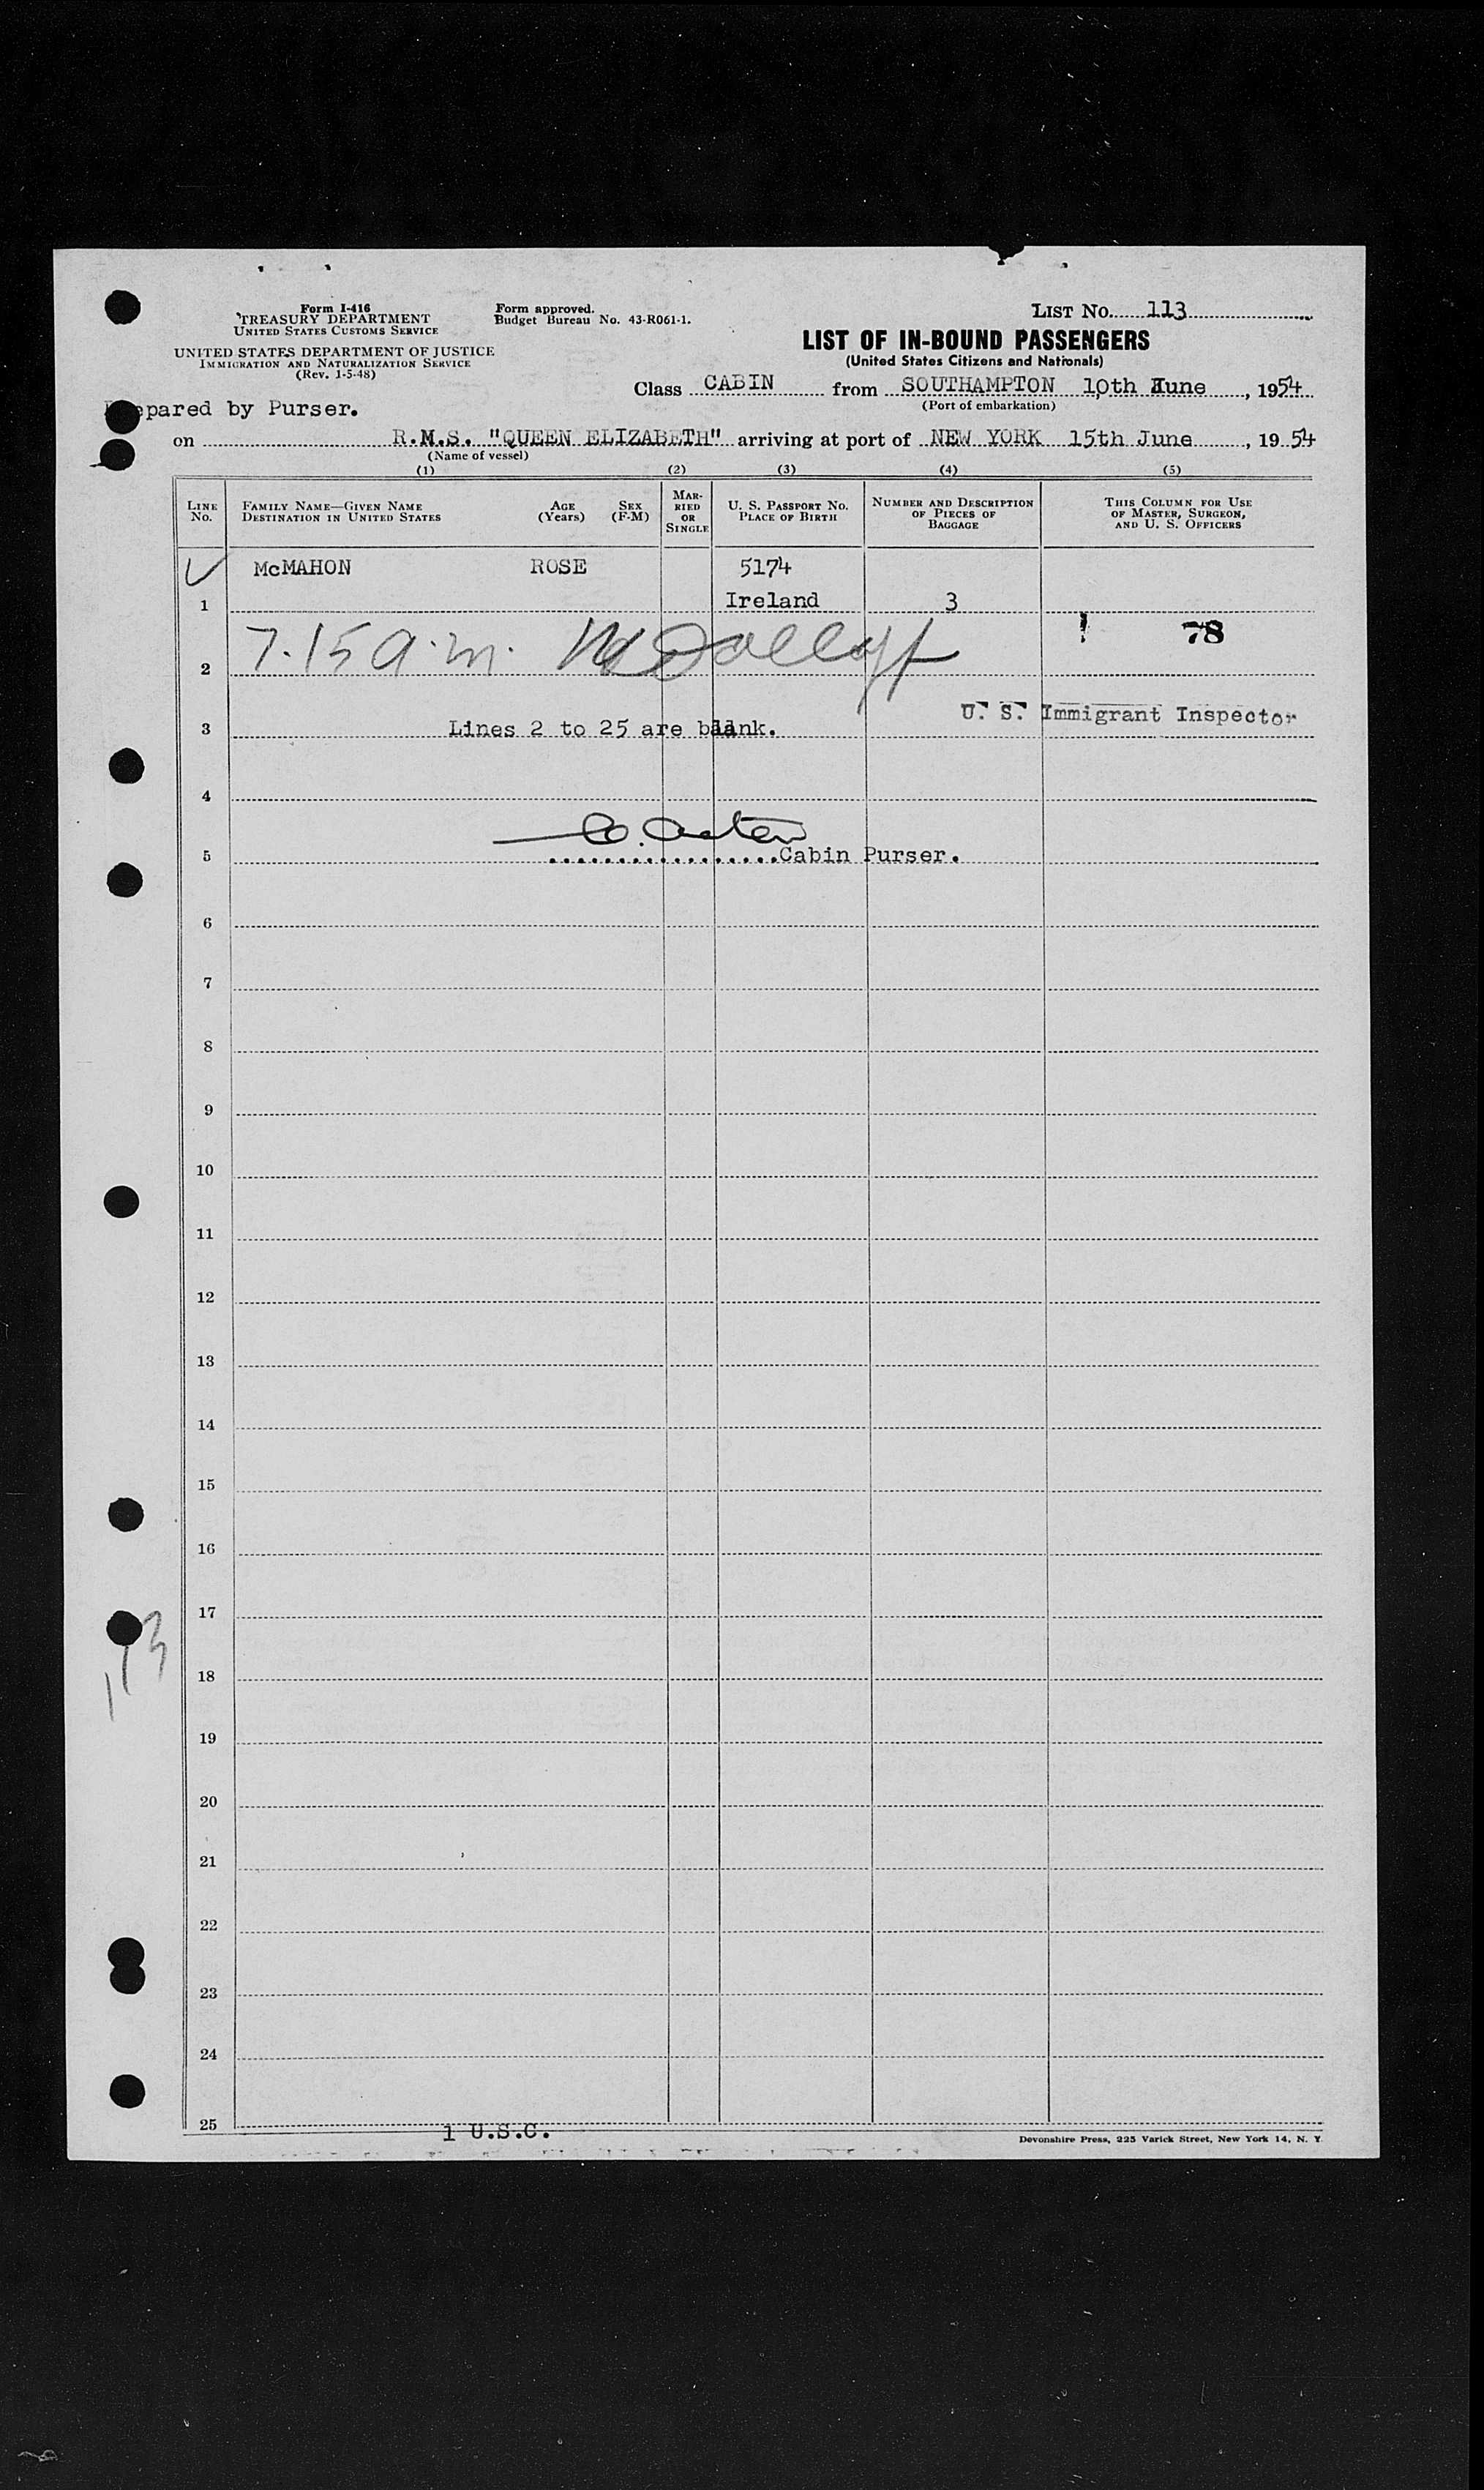 Form I-416
TREASURY DEPARTMENT
UNITED STATES CUSTOMS SERVICE
UNITED STATES DEPARTMENT OF JUSTICE
IMMIGRATION AND NATURALIZATION SERVICE
(Rev. 1-5-48)
Form approved.
Budget Bureau No. 43-R061-1.
LIST No. 113
LIST OF IN-BOUND PASSENGERS
(United States Citizens and Nationals)
Class CABIN from SOUTHAMPTON 10th June, 1954
(Port of embarkation)
epared by Purser.
on R.M.S. "QUEEN ELIZABETH" arriving at port of NEW YORK 15th June, 1954
(Name of vessel)
(1) (2) (3) (4) (5)
LINE No.
FAMILY NAME—GIVEN NAME DESTINATION IN UNITED STATES
AGE (Years)
SEX (F-M)
MARRIED OR SINGLE
U. S. PASSPORT NO. PLACE OF BIRTH
NUMBER AND DESCRIPTION OF PIECES OF BAGGAGE
THIS COLUMN FOR USE OF MASTER, SURGEON, AND U. S. OFFICERS
McMAHON ROSE 5174
1 Ireland 3
78
2 7.15 a.m.
U. S. Immigrant Inspector
3 Lines 2 to 25 are blank.
4
5 Cabin Purser.
6
7
8
9
10
11
12
13
14
15
16
17
113
18
19
20
21
22
23
24
25
1 U.S.C.
Devonshire Press, 225 Varick Street, New York 14, N. Y.